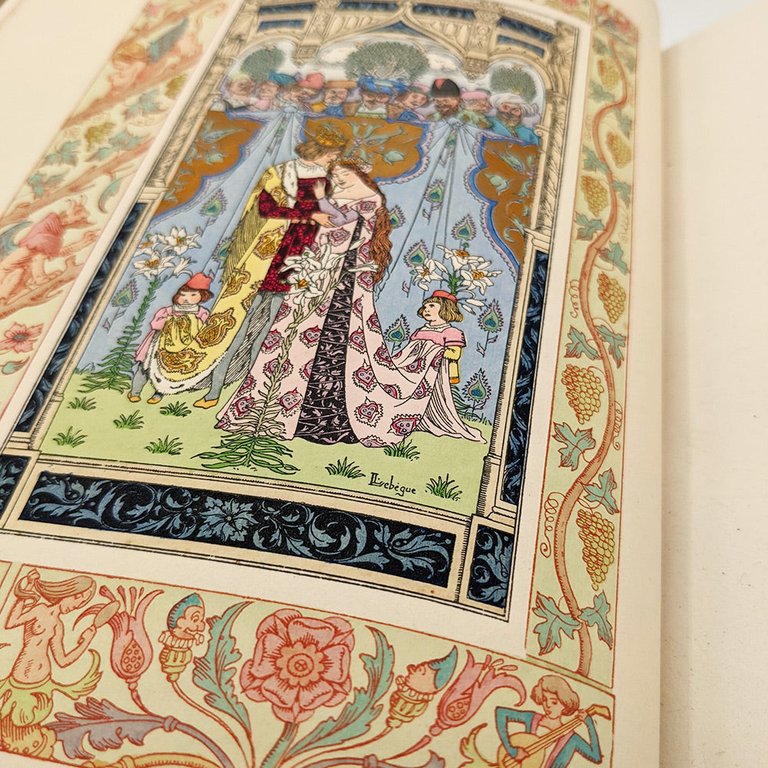 LLebègue